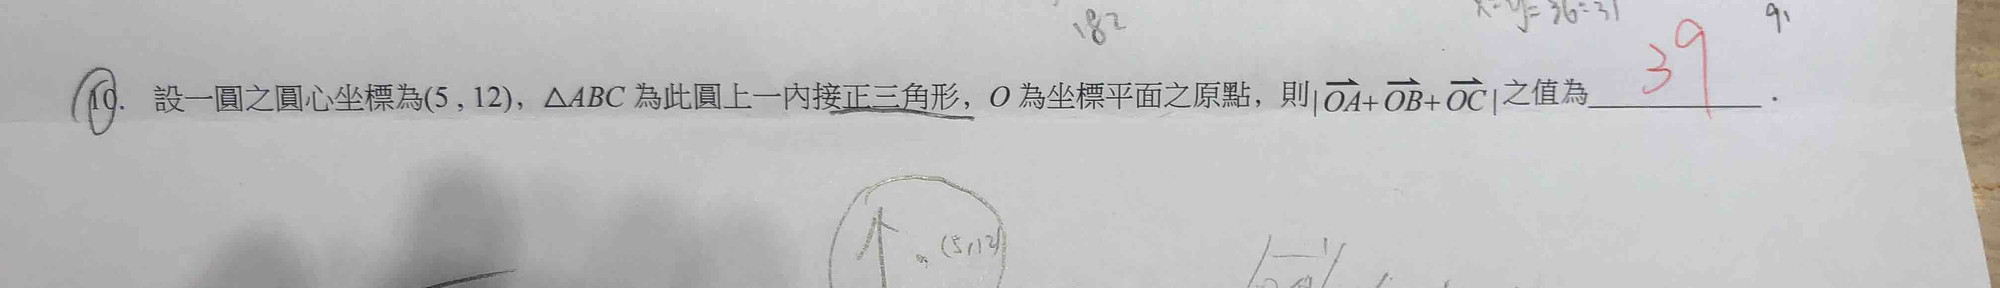 182
x=y=36=31
9,
10. 設一圓之圓心坐標為(5 , 12)，△ABC 為此圓上一內接正三角形，O 為坐標平面之原點，則|OA+OB+OC|之值為 39 .
(5,12)